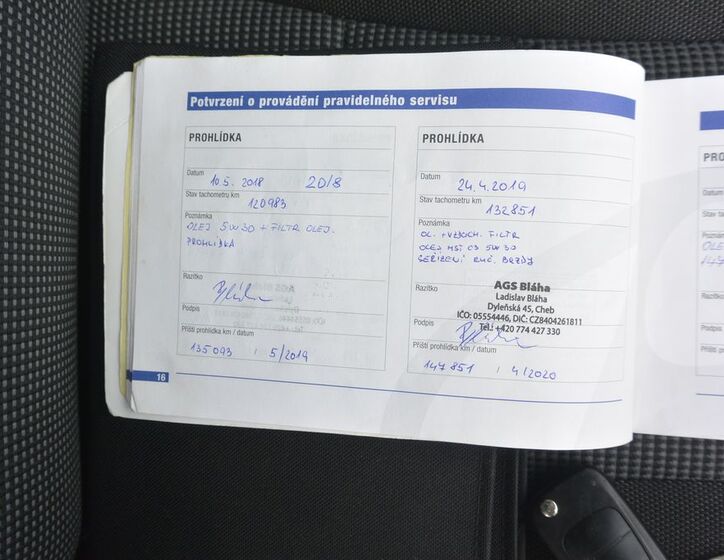 Potvrzení o provádění pravidelného servisu
PROHLÍDKA
Datum
10.5. 2018 2018
Stav tachometru km
120983
Poznámka
OLEJ 5W30 + FILTR OLEJ.
PROHLÍDKA
Razítko
Podpis
Příští prohlídka km / datum
135 093 / 5/2019
PROHLÍDKA
Datum
24.4.2019
Stav tachometru km
132851
Poznámka
OL. + VZDUCH. FILTR
OLEJ MST C3 5W30
SEŘÍZENÍ RUČ. BRZDY
Razítko
AGS Bláha
Ladislav Bláha
Dyleňská 45, Cheb
IČO: 05554446, DIČ: CZ8404261811
Tel.: +420 774 427 330
Podpis
Příští prohlídka km / datum
147 851 / 4/2020
16
PRO
Datum
Stav ta
Poznám
Razítko
Podpis
Příští p